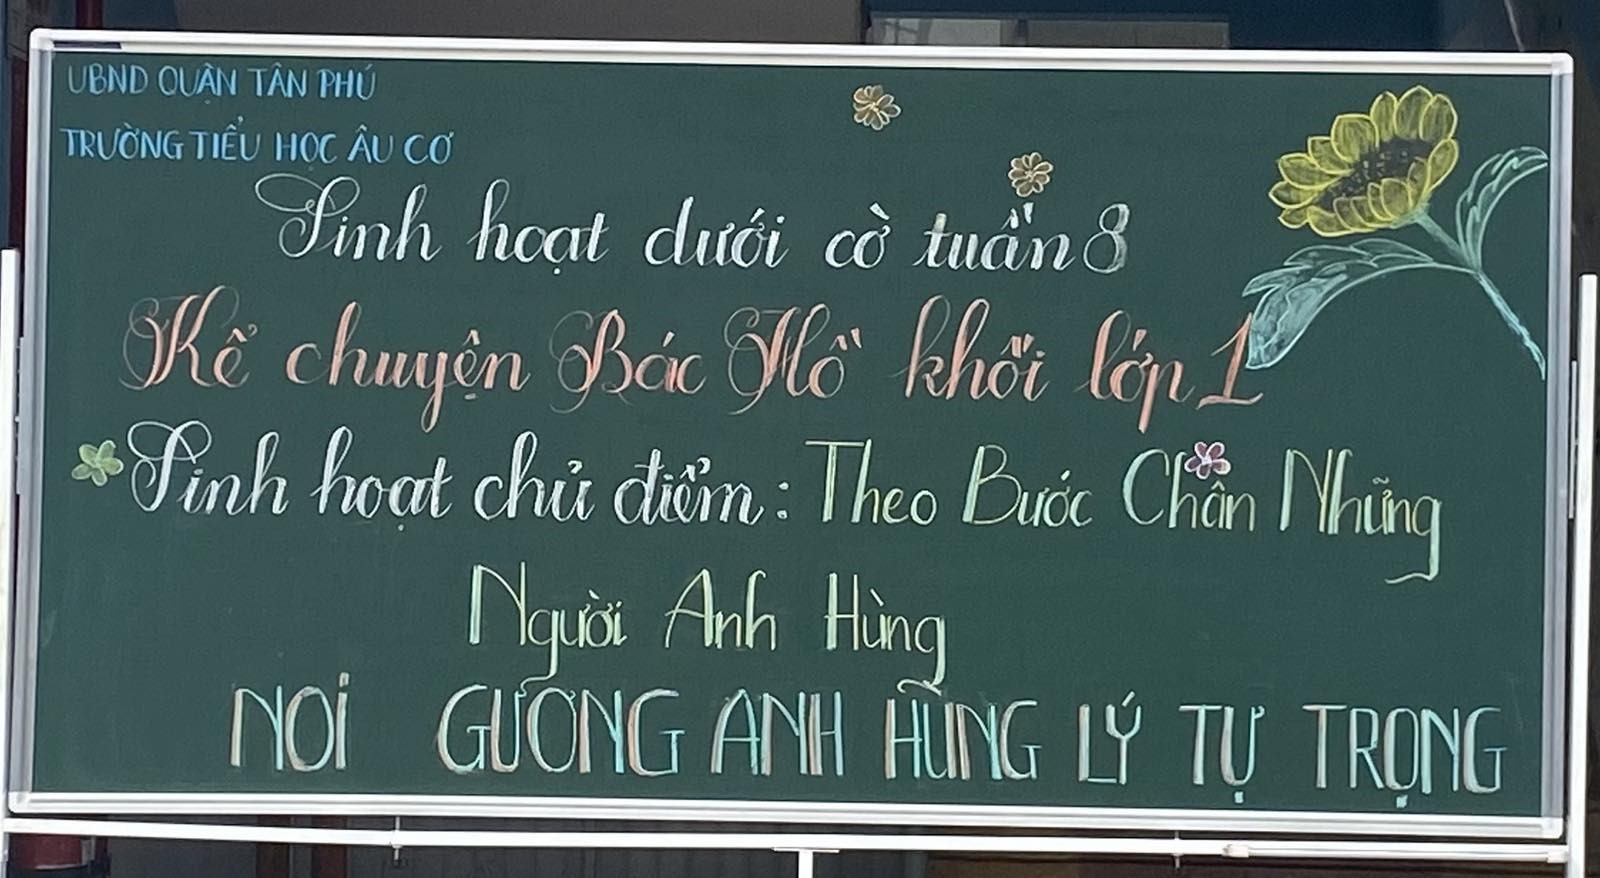 UBND QUẬN TÂN PHÚ
TRƯỜNG TIỂU HỌC ÂU CƠ
Sinh hoạt dưới cờ tuần 8
Kể chuyện Bác Hồ khối lớp 1
Sinh hoạt chủ điểm: Theo Bước Chân Những
Người Anh Hùng
NOI GƯƠNG ANH HÙNG LÝ TỰ TRỌNG